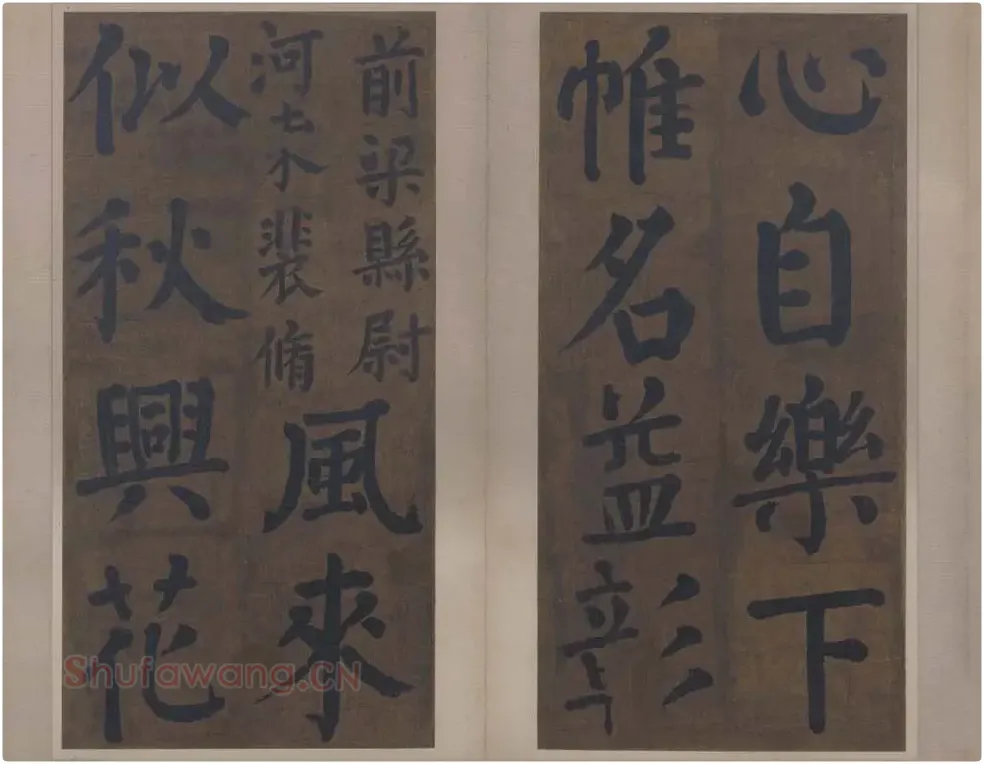 心自樂下
帷名益彰
前梁縣尉
河東裴脩
風來
似秋興花
Shufawang.CN